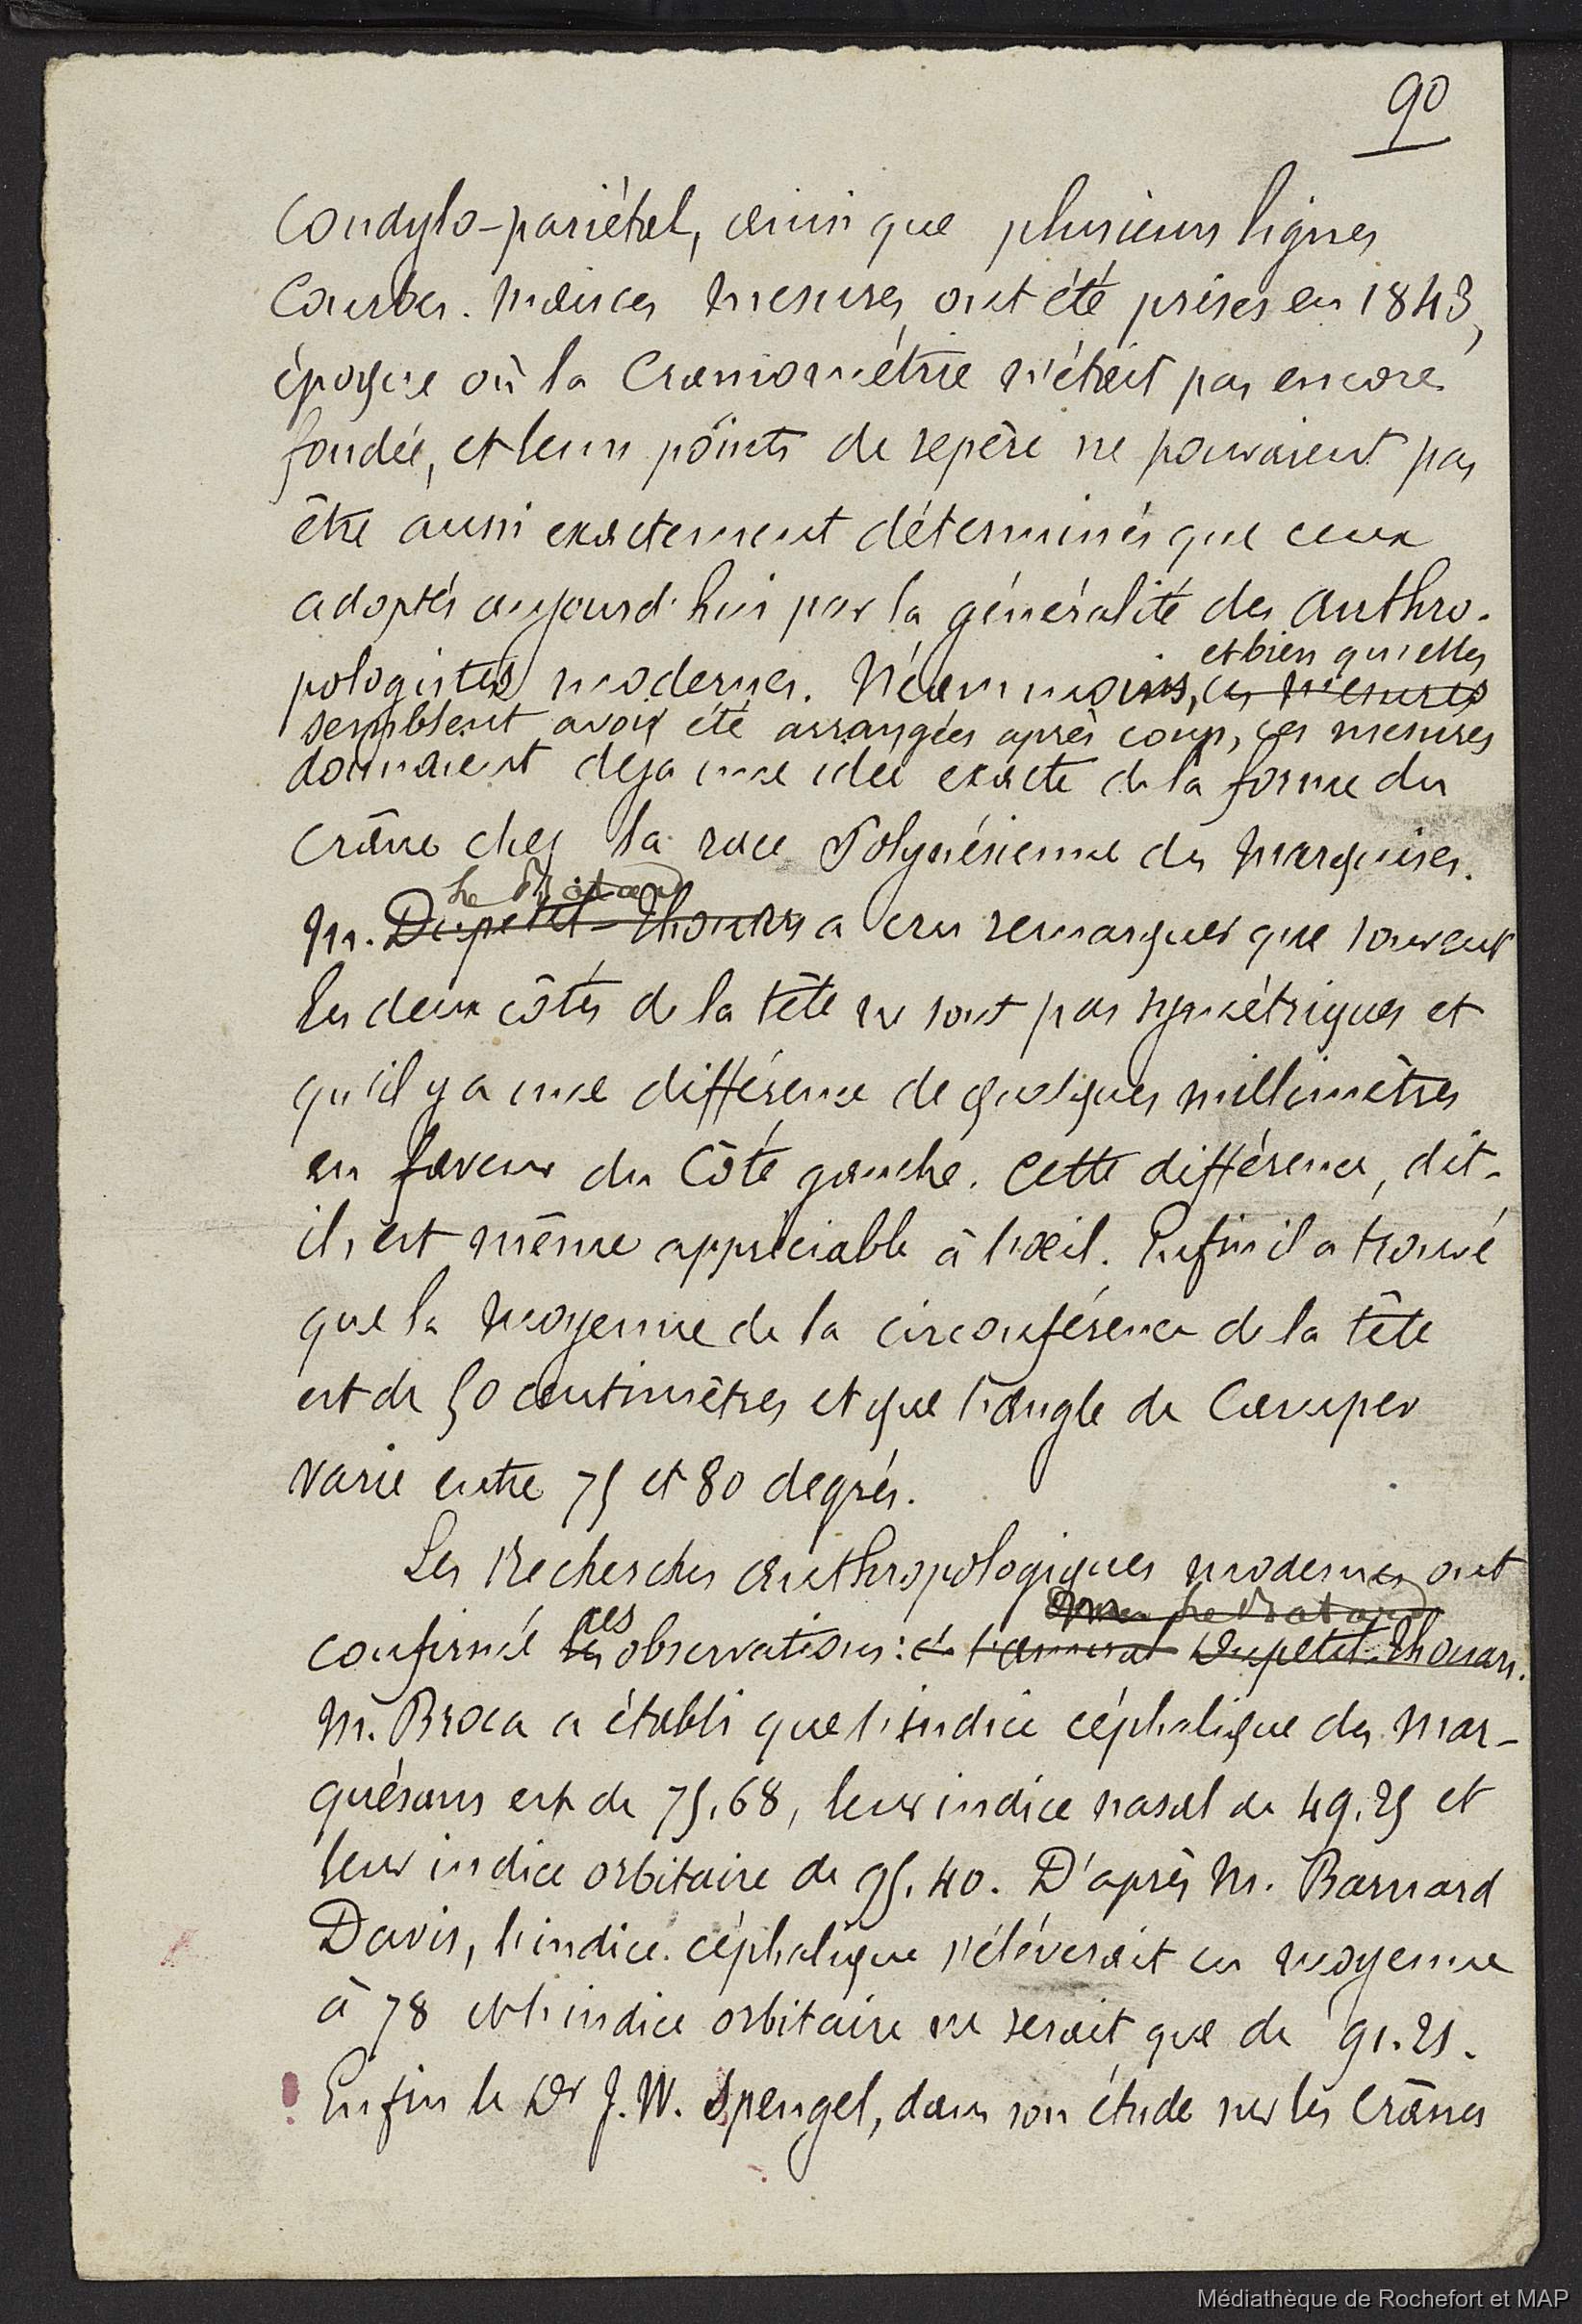 90
Condylo-pariétal, ainsi que plusieurs lignes
Courbes. Mais ces mesures ont été prises en 1843,
époque où la Craniométrie n'était pas encore
fondée, et leurs points de repère ne pouvaient pas
être aussi exactement déterminés que ceux
adoptés aujourd'hui par la généralité des anthro-
et bien qu'elles
pologistes modernes. Néanmoins, ces mesures
semblent avoir été arrangées après coup, ces mesures
donnaient déja une idée exacte de la forme du
Crâne chez la race Polynésienne des Marquises.
Le Batard
M. Dupetit-Thouars a cru remarquer que souvent
les deux côtés de la tête ne sont pas symétriques et
qu'il y a une différence de quelques millimètres
en faveur du Côté gauche. Cette différence, dit-
il, est même appréciable à l'œil. Enfin il a trouvé
que la moyenne de la circonférence de la tête
est de 50 centimètres et que l'angle de Camper
varie entre 75 et 80 degrés.
Les Recherches anthropologiques modernes ont
ces Le Batard
confirmé les observations: de l'amiral Dupetit-Thouars.
M. Broca a établi que l'indice céphalique des Mar-
quésans est de 75.68, leur indice nasal de 49.25 et
leur indice orbitaire de 95.40. D'après M. Barnard
Davis, l'indice céphalique s'élèverait en moyenne
à 78 et l'indice orbitaire ne serait que de 91.21.
Enfin le Dr J. W. Spengel, dans son étude sur les Crânes
Médiathèque de Rochefort et MAP